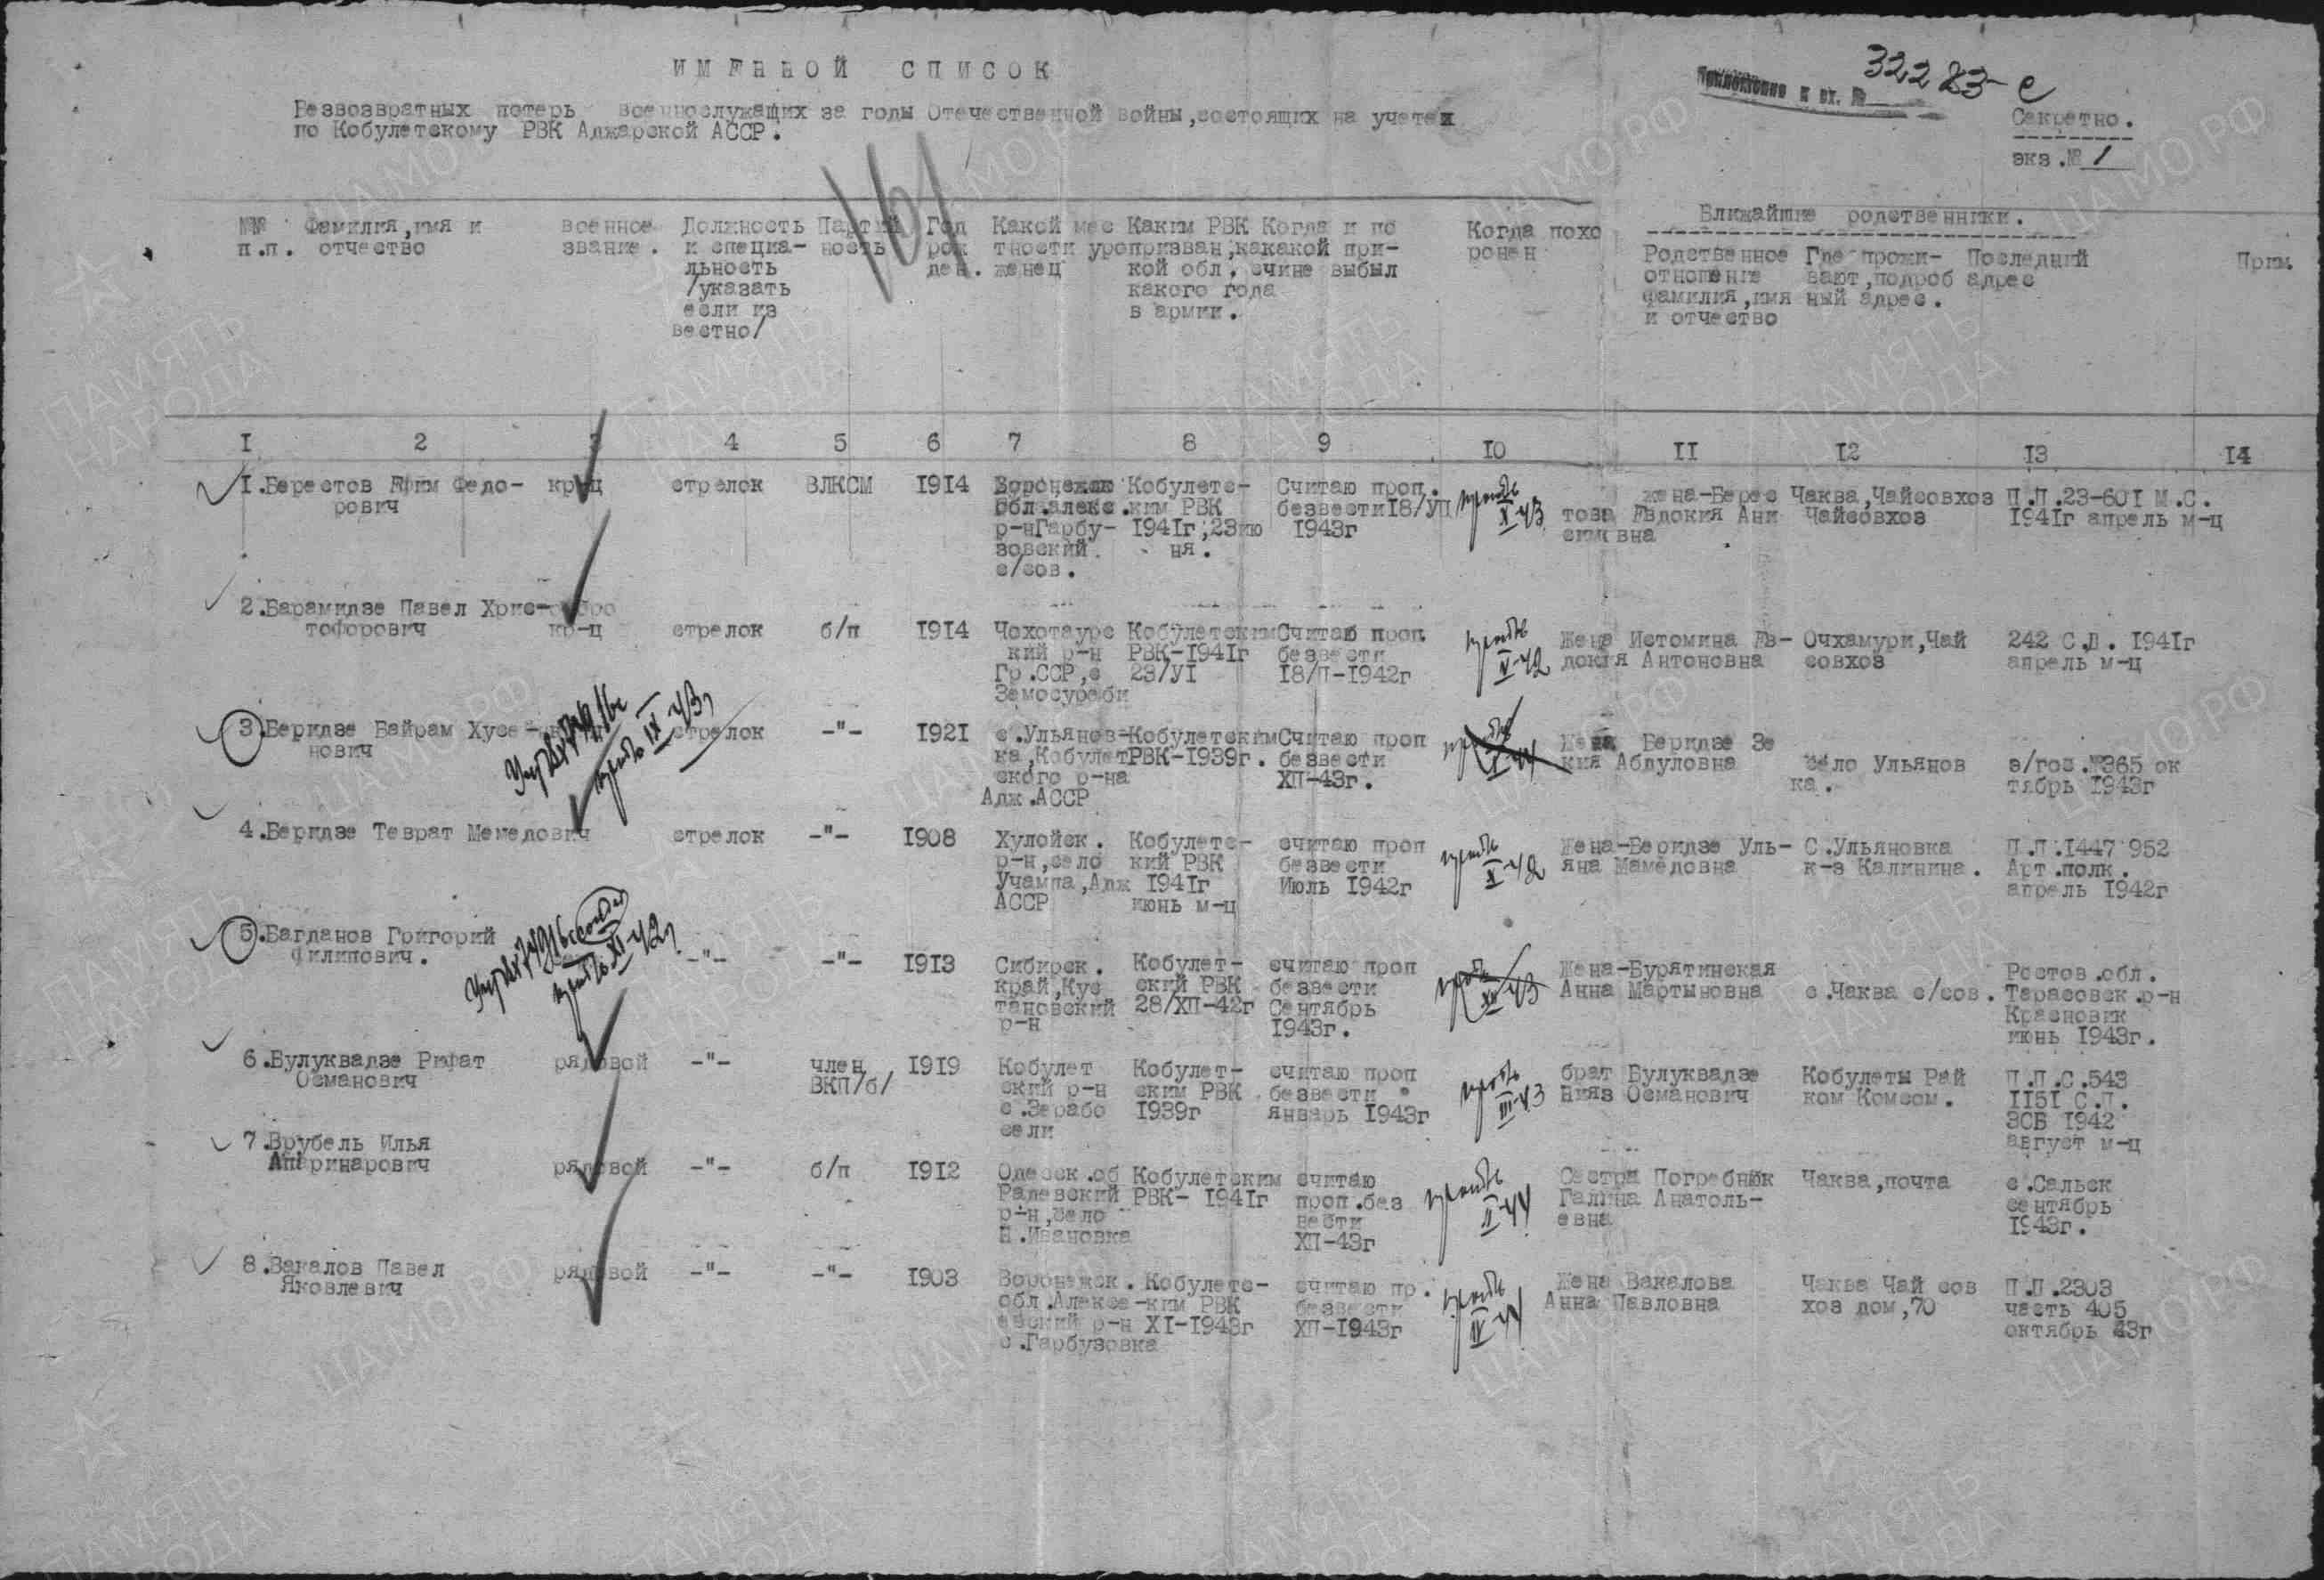 ИМЕННОЙ СПИСОК
32283-с
Приложение к вх. №
Безвозвратных потерь военнослужащих за годы Отечественной войны,состоящих на учетех
по Кобулетскому РВК Аджарской АССР.
Секретно.
экз.№ 1
161
№№ п.п.
Фамилия,имя и
отчество
военное
звание.
Должность
и специа-
льность
/указать
если из
вестно/
Партий
ность
Год
рож
ден.
Какой мес
тности уро
женец
Каким РВК
призван,ка
кой обл.
какого года
в армии.
Когда и по
какой при-
чине выбыл
Когда похо
ронен
Ближайшие родственники.
Родственное
отношение
фамилия,имя
и отчество
Где прожи-
вают,подроб
ный адрес.
Последний
адрес
Прим.
I 2 3 4 5 6 7 8 9 10 II I2 I3 I4
I.Берестов Ефим Федо-
рович
кр-ц
стрелок
ВЛКСМ
I9I4
Воронежск
обл.алекс.
р-нГарбу-
зовский
с/сов.
Кобулетс-
ким РВК
I94Iг,23ию
ня.
Считаю проп.
безвестиI8/УП
I943г
жена-Берес
това Евдокия Ани
симовна
Чаква,Чайсовхоз
Чайсовхоз
П.П.23-60I М.С.
I94Iг апрель м-ц
2.Барамидзе Павел Хрис-
тофорович
кр-ц
стрелок
б/п
I9I4
Чохотаурс
кий р-н
Гр.ССР,с
Земосуреби
Кобулетским
РВК-I94Iг
23/УI
Считаю проп
безвести
I8/П-I942г
Жена Истомина Ев-
докия Антоновна
Очхамури,Чай
совхоз
242 С.Д. I94Iг
апрель м-ц
3.Беридзе Байрам Хусе-
нович
стрелок
-"-
I92I
с.Ульянов-
ка,Кобулет
ского р-на
Адж.АССР
Кобулетским
РВК-I939г.
Считаю проп
безвести
ХП-43г.
Жена Беридзе Зе
кия Абдуловна
село Ульянов
ка.
э/гос.№365 ок
тябрь I943г
4.Беридзе Теврат Мемедович
стрелок
-"-
I908
Хулойск.
р-н,село
Учампа,Адж
АССР
Кобулетс-
кий РВК
I94Iг
июнь м-ц
считаю проп
безвести
Июль I942г
Жена-Беридзе Уль-
яна Мамедовна
С.Ульяновка
к-з Калинина.
П.П.I447 952
Арт.полк.
апрель I942г
5.Багданов Григорий
Филипович.
-"-
-"-
I9I3
Сибирск.
край,Кус
тановский
р-н
Кобулет-
ский РВК
28/ХП-42г
считаю проп
безвести
Сентябрь
I943г.
Жена-Бурятинская
Анна Мартыновна
с.Чаква с/сов.
Ростов.обл.
Тарасовск.р-н
Красновик
июнь I943г.
6.Булуквадзе Рифат
Османович
рядовой
-"-
член
ВКП/б/
I9I9
Кобулет
ский р-н
с.Зерабо
сели
Кобулет-
ским РВК
I939г
считаю проп
безвести
январь I943г
брат Булуквадзе
Нияз Османович
Кобулеты Рай
ком Комсом.
П.П.С.543
II5I С.П.
ЗСБ I942
август м-ц
7.Врубель Илья
Апаринарович
рядовой
-"-
б/п
I9I2
Одесск.об
Радевский
р-н,село
Н.Ивановка
Кобулетским
РВК- I94Iг
считаю
проп.без
вести
ХП-43г
Сестра Погребнюк
Галина Анатоль-
евна
Чаква,почта
с.Сальск
сентябрь
I943г.
8.Вакалов Павел
Яковлевич
рядовой
-"-
-"-
I903
Воронежск.
обл.Алексе-
евский р-н
с.Гарбузовка
Кобулетс-
ким РВК
XI-I943г
считаю пр.
безвести
ХП-I943г
Жена Вакалова
Анна Павловна
Чаква Чай сов
хоз дом,70
П.П.2303
часть 405
октябрь 43г